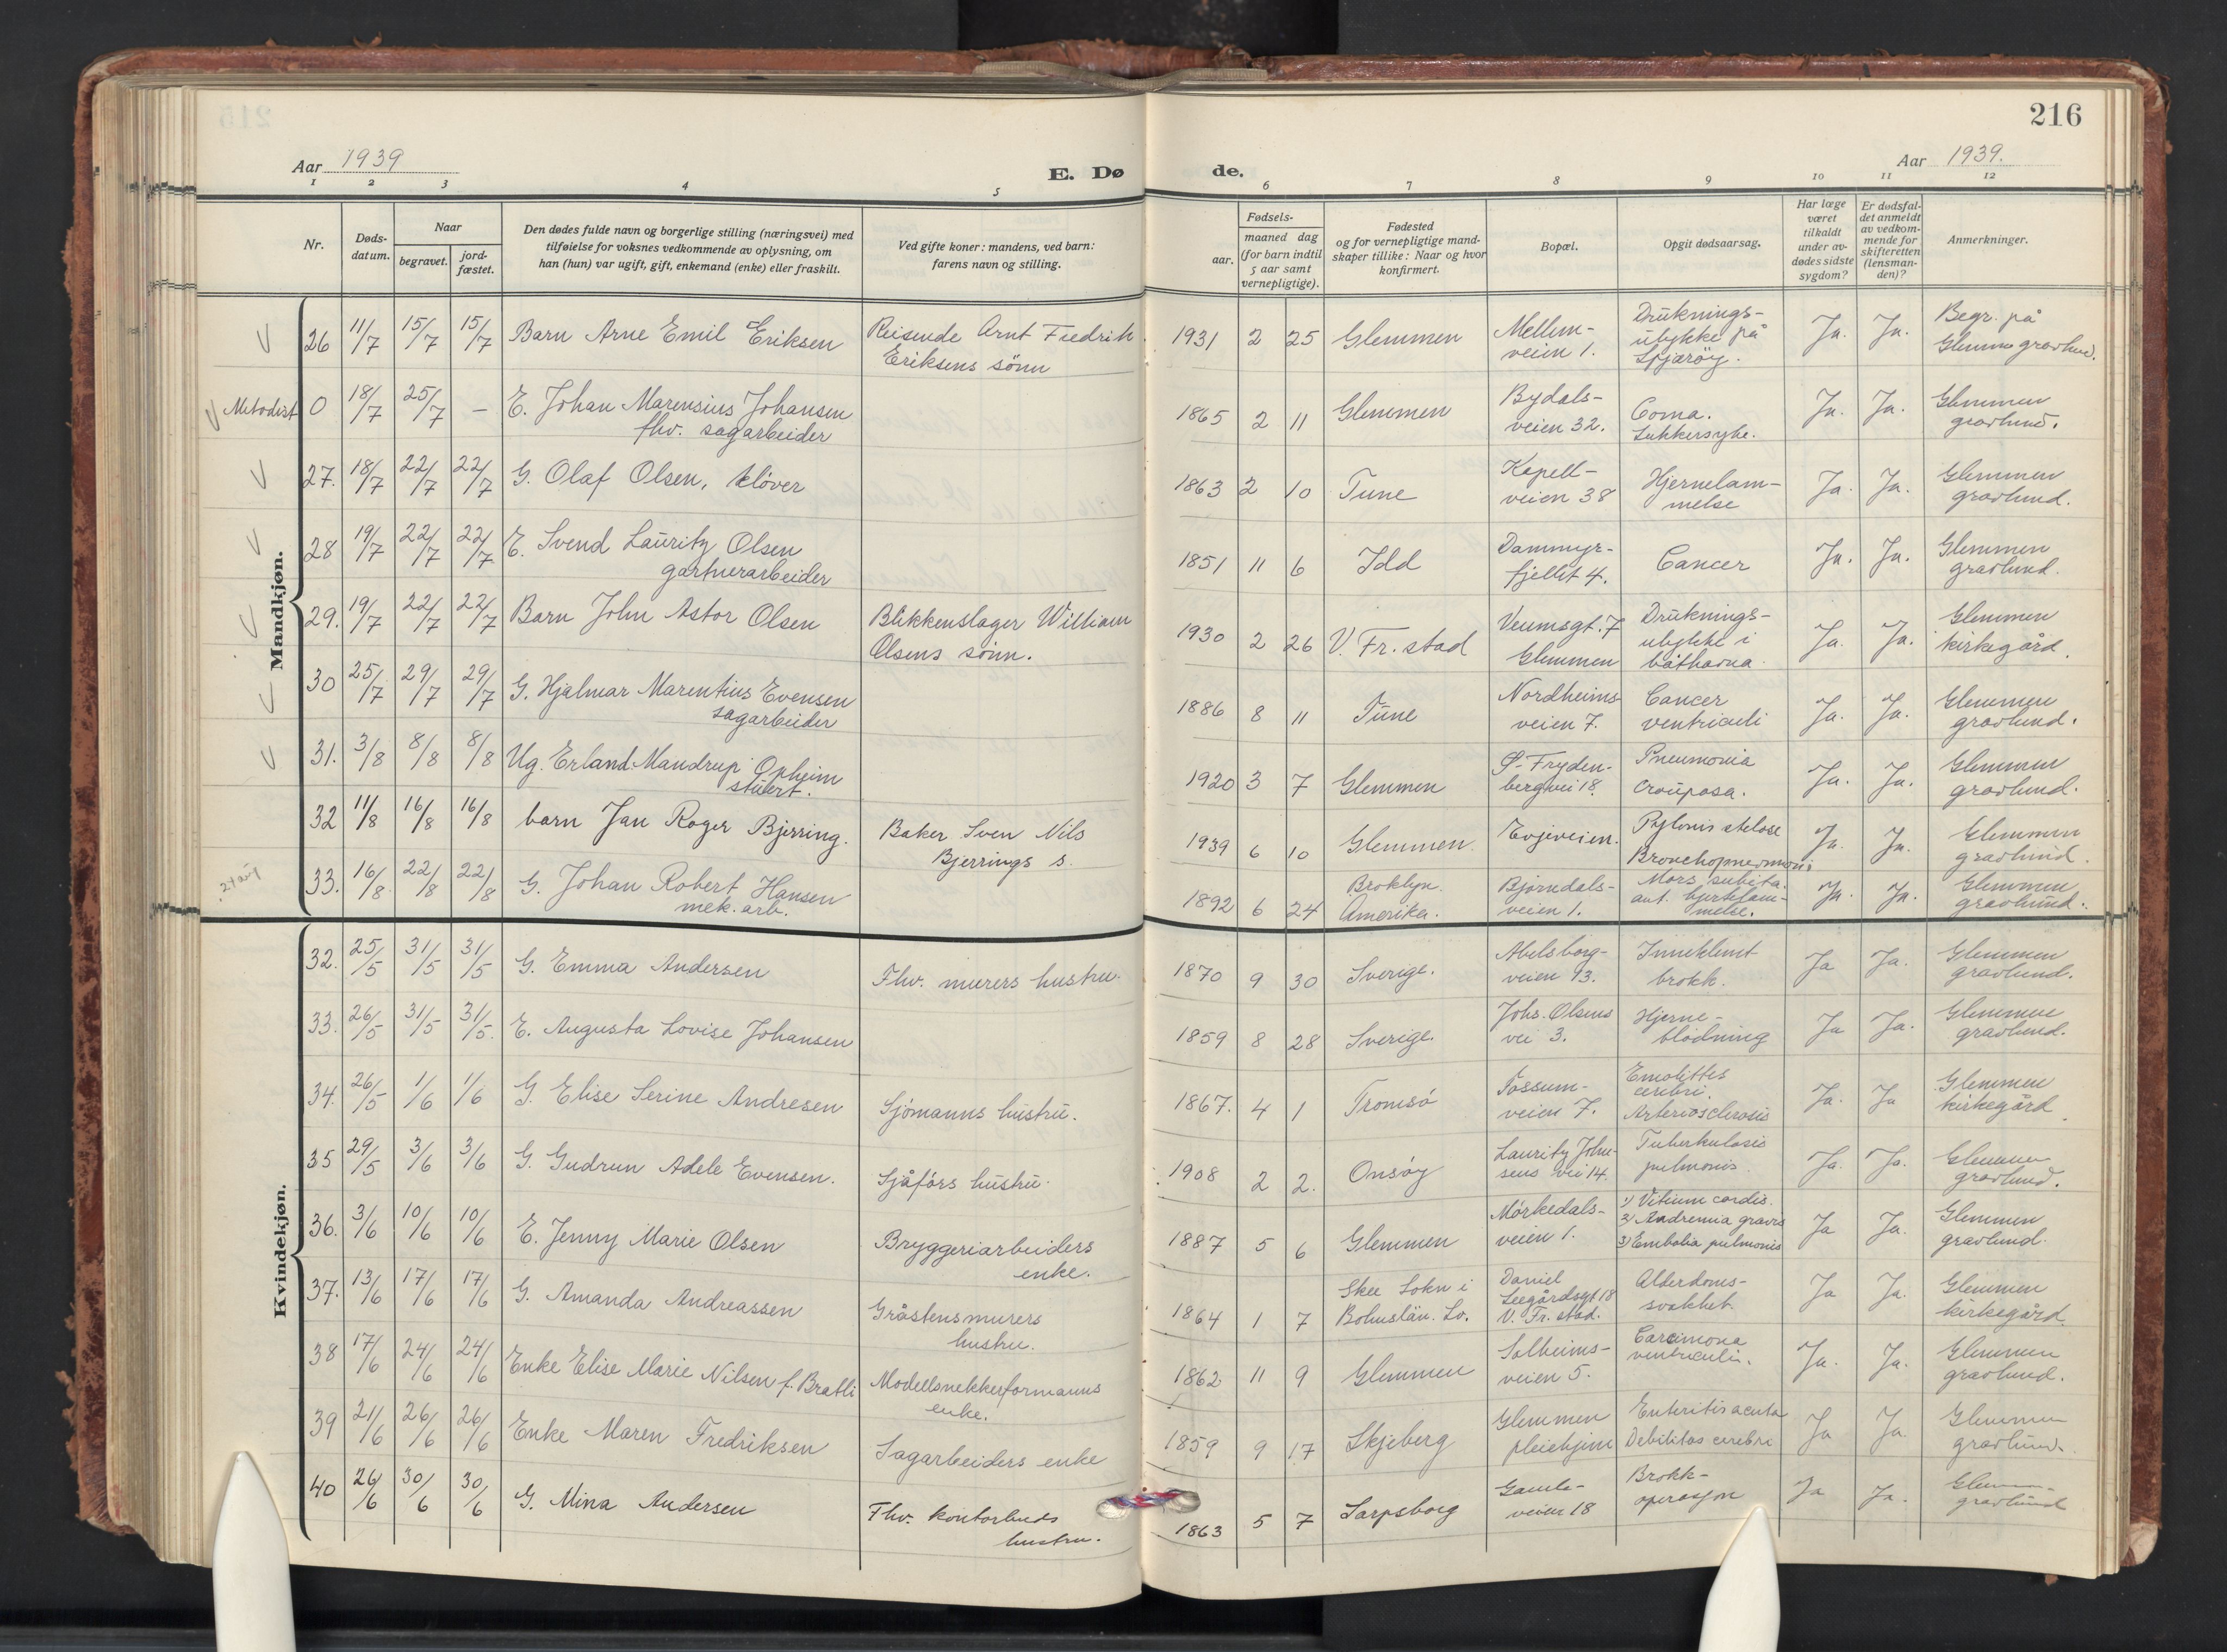 216
Aar 1939
E. Dø
de.
Aar 1939.
1 2 3 4 5 6 7 8 9 10 11 12
Nr.
Døds-
datum.
Naar
begravet.
jord-
fæstet.
Den dødes fulde navn og borgerlige stilling (næringsvei) med
tilføielse for voksnes vedkommende av oplysning, om
han (hun) var ugift, gift, enkemand (enke) eller fraskilt.
Ved gifte koner: mandens, ved barn:
farens navn og stilling.
Fødsels-
aar.
maaned dag
(for barn indtil
5 aar samt
vernepligtige).
Fødested
og for vernepligtige mand-
skaper tillike: Naar og hvor
konfirmert.
Bopæl.
Opgit dødsaarsag.
Har læge
været
tilkaldt
under av-
dødes sidste
sygdom?
Er dødsfal-
det anmeldt
av vedkom-
mende for
skifteretten
(lensman-
den)?
Anmerkninger.
Mandkjøn.
26 11/7 15/7 15/7 Barn Arne Emil Eriksen Reisende Arnt Fredrik
Eriksens sönn
1931 2 25 Glemmen Mellem-
veien 1. Druknings-
ulykke på
Spjærøy. Ja. Ja. Begr. på
Glemme gravlund.
Metodist 0 18/7 25/7 – E. Johan Marensius Johansen
fhv. sagarbeider
1865 2 11 Glemmen Bydals-
veien 32. Coma.
Sukkersyke. Ja. Ja. Glemmen
gravlund.
27. 18/7 22/7 22/7 G. Olaf Olsen, kløver
1863 2 10 Tune Kapell-
veien 38 Hjernelam-
melse Ja. Ja. Glemmen
gravlund.
28 19/7 22/7 22/7 E. Svend Lauritz Olsen
gartnerarbeider
1851 11 6 Idd Dammyr-
fjellet 4. Cancer Ja. Ja. Glemmen
gravlund.
29. 19/7 22/7 22/7 Barn John Astor Olsen Blikkenslager William
Olsens sönn.
1930 2 26 V. Fr. stad Veumsgt. 7
Glemmen Druknings-
ulykke i
båthavna. Ja. Ja. Glemmen
kirkegård.
30 25/7 29/7 29/7 G. Hjalmar Marentius Evensen
sagarbeider
1886 8 11 Tune Nordheims-
veien 7. Cancer
ventriculi Ja. Ja. Glemmen
gravlund.
31. 3/8 8/8 8/8 Ug. Erland Mandrup Opheim
stuert.
1920 3 7 Glemmen S. Fryden-
bergvei 18. Pneumonia
crouposa. Ja. Ja. Glemmen
gravlund.
32 11/8 16/8 16/8 barn Jan Roger Bjerring. Baker Sven Nils
Bjerrings s.
1939 6 10 Glemmen. Evjeveien. Pylonis stelose
Bronchopneumoni. Ja. Ja. Glemmen
gravlund.
33. 16/8 22/8 22/8 G. Johan Robert Hansen
mek. arb.
1892 6 24 Broklyn.
Amerika. Bjørndals-
veien 1. Mors subita.
ant. hjertelam-
melse. Ja. Ja. Glemmen
gravlund.
Kvindekjøn.
32. 25/5 31/5 31/5 G. Emma Andersen Fhv. murers hustru.
1870 9 30 Sverige. Abelsborg-
veien 13. Inneklemt
brokk. Ja Ja. Glemmen
gravlund.
33. 26/5 31/5 31/5. E. Augusta Lovise Johansen
1859 8 28 Sverige. Johs. Olsens
vei 3. Hjerne-
blödning Ja Ja. Glemmen
gravlund.
34. 26/5 1/6 1/6 G. Elise Serine Andresen Sjömanns hustru.
1867. 4 1 Tromsö Fossum-
veien 7. Emolittes
cerebri.
Arteriosclerosis Ja. Ja Glemmen
kirkegård.
35 29/5 3/6 3/6 G. Gudrun Adele Evensen. Sjåförs hustru.
1908 2 2. Onsöy Lauritz John-
sens vei 14. Tuberkulosis
pulmonis Ja. Ja. Glemmen
gravlund.
36. 3/6 10/6 10/6 E. Jenny Marie Olsen Bryggeriarbeiders
enke.
1887 5 6 Glemmen Mörkedals-
veien 1. 1) Vitium cordis.
2) Andremia gravis
3) Embolia pulmonis Ja Ja. Glemmen
gravlund.
37. 13/6 17/6 17/6 G. Amanda Andreassen Gråstensmurers
hustru.
1864 1 7 Skee Sokn i
Bohuslän. Sv. Daniel
Leegårdsgt 18
V. Fr. stad. Alderdoms-
svakhet. Ja Ja. Glemmen
kirkegård.
38 17/6 24/6 24/6 Enke Elise Marie Nilsen f. Bratli Modellsnekkerformanns
enke.
1862 11 9 Glemmen Solheims-
veien 5. Carcimona
ventriculi. Ja. Ja. Glemmen
gravlund.
39 21/6 26/6 26/6 Enke Maren Fredriksen Sagarbeiders enke
1859 9 17 Skjeberg Glemmen
pleiehjem Enteritis acuta
Debilitas cerebri Ja Ja Glemmen
gravlund.
40 26/6 30/6 30/6 G. Mina Andersen Fhv. kontorbuds
hustru.
1863 5 7 Sarpsborg Gamle-
veien 18 Brokk-
operasjon Ja Ja. Glemmen
gravlund